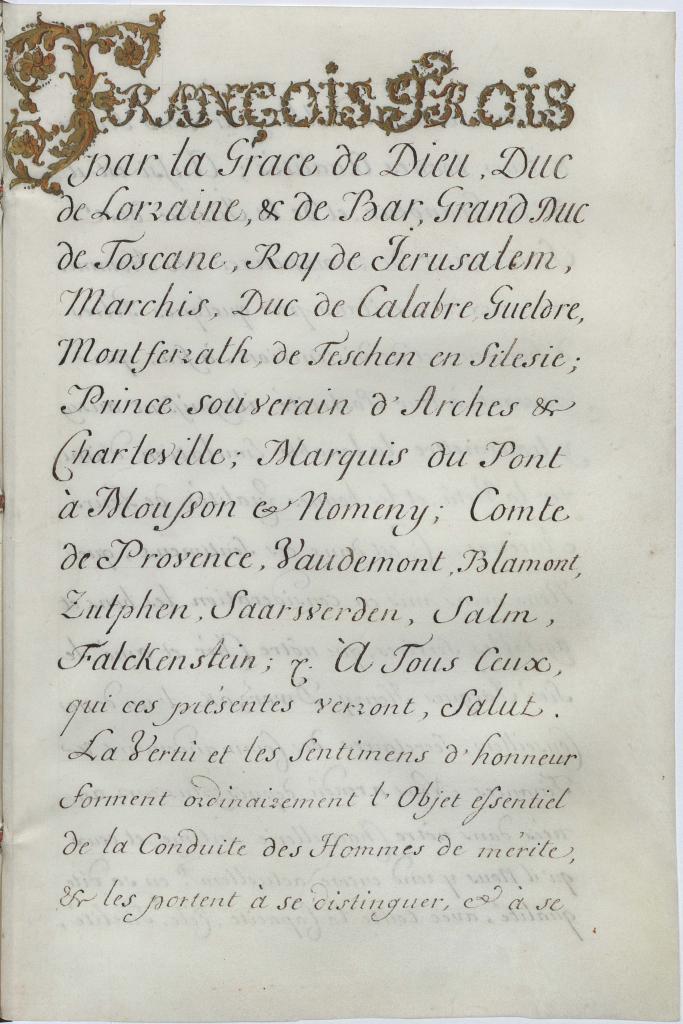 François Trois
par la Grace de Dieu, Duc
de Lorraine, & de Bar, Grand Duc
de Toscane, Roy de Jerusalem,
Marchis, Duc de Calabre, Gueldre,
Montferrath, de Teschen en Silesie;
Prince souverain d'Arches &
Charleville; Marquis du Pont
à Mousson & Nomeny; Comte
de Provence, Vaudemont, Blamont,
Zutphen, Saarwerden, Salm,
Falckenstein; &c. À Tous Ceux,
qui ces présentes verront, Salut.
La Vertù et les Sentimens d'honneur
forment ordinairement l'Objet essentiel
de la Conduite des Hommes de mérite,
& les portent à se distinguer, & à se